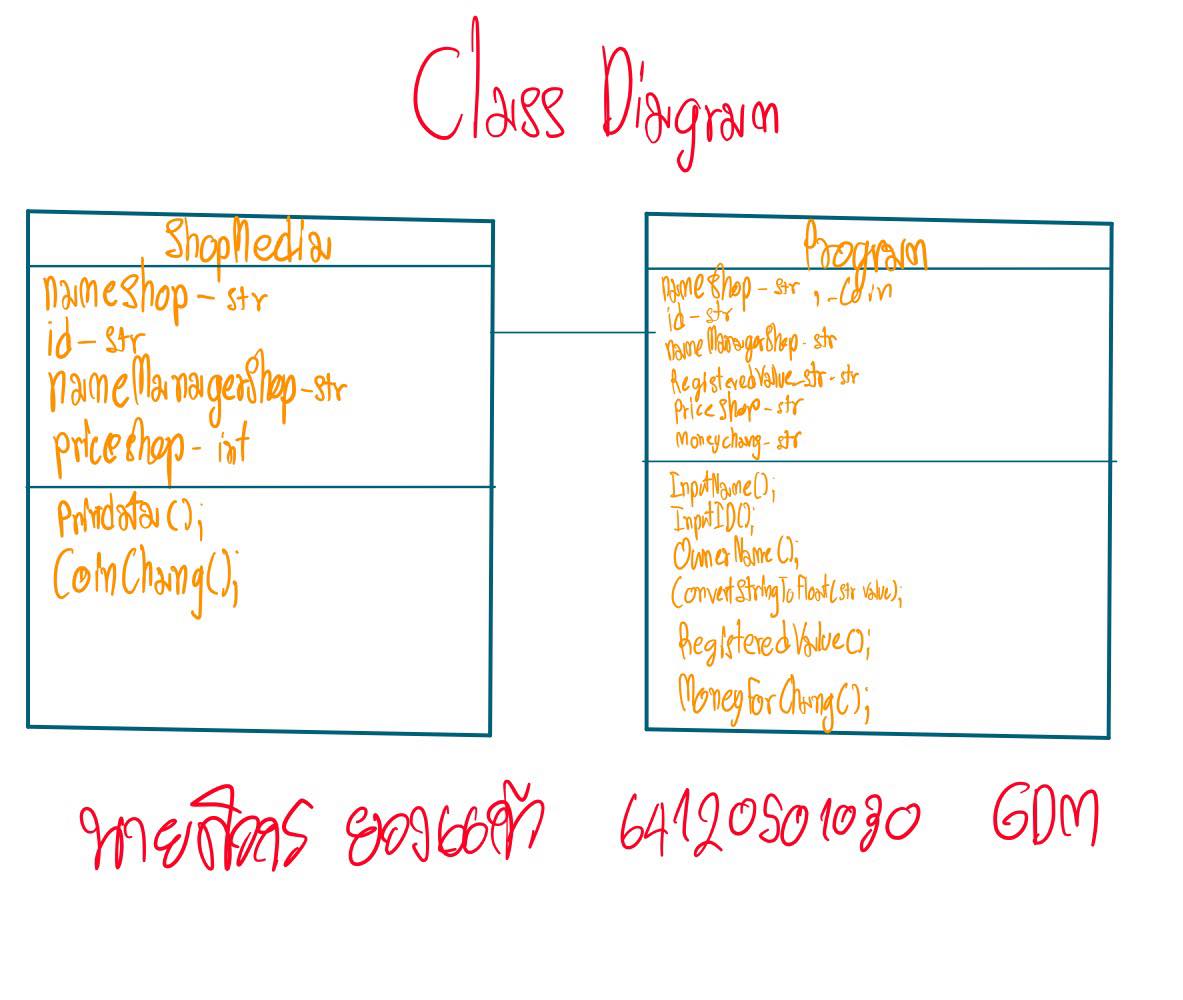 Class Diagram
ShopMedia
nameshop - str
id - str
nameManagerShop - str
priceshop - int
Printdata();
CoinChang();
Program
nameshop - str , -Coin
id - str
nameManagerShop - str
RegisteredValue_str - str
Priceshop - str
Moneychang - str
InputName();
InputID();
OwnerName();
ConvertStringToFloat(str value);
RegisteredValue();
MoneyForChang();
64120501030 GDM